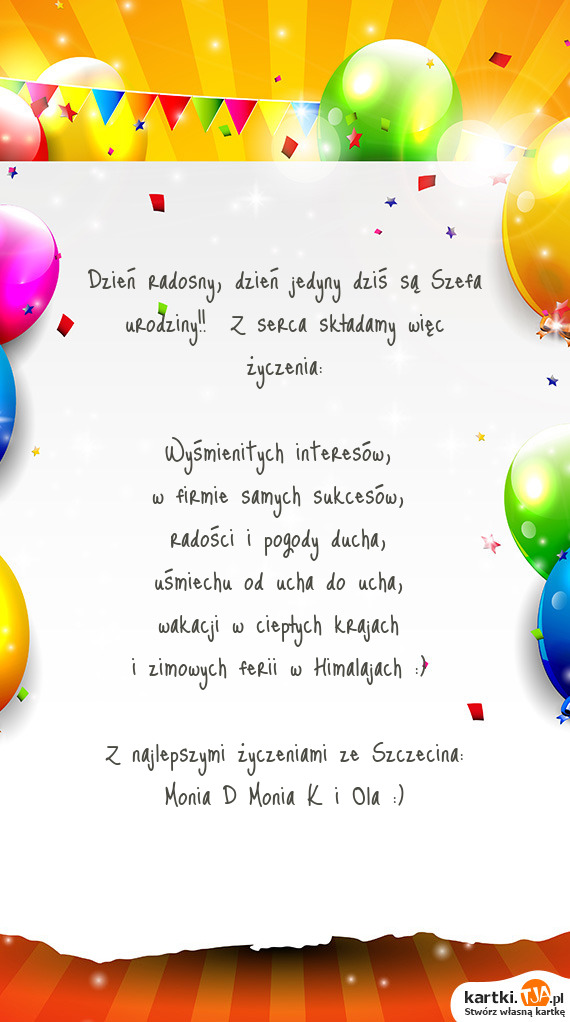 Dzień radosny, dzień jedyny dziś są Szefa
urodziny!! Z serca składamy więc
życzenia:
Wyśmienitych interesów,
w firmie samych sukcesów,
radości i pogody ducha,
uśmiechu od ucha do ucha,
wakacji w ciepłych krajach
i zimowych ferii w Himalajach :)
Z najlepszymi życzeniami ze Szczecina:
Monia D Monia K i Ola :)
kartki.TJA.pl
Stwórz własną kartkę